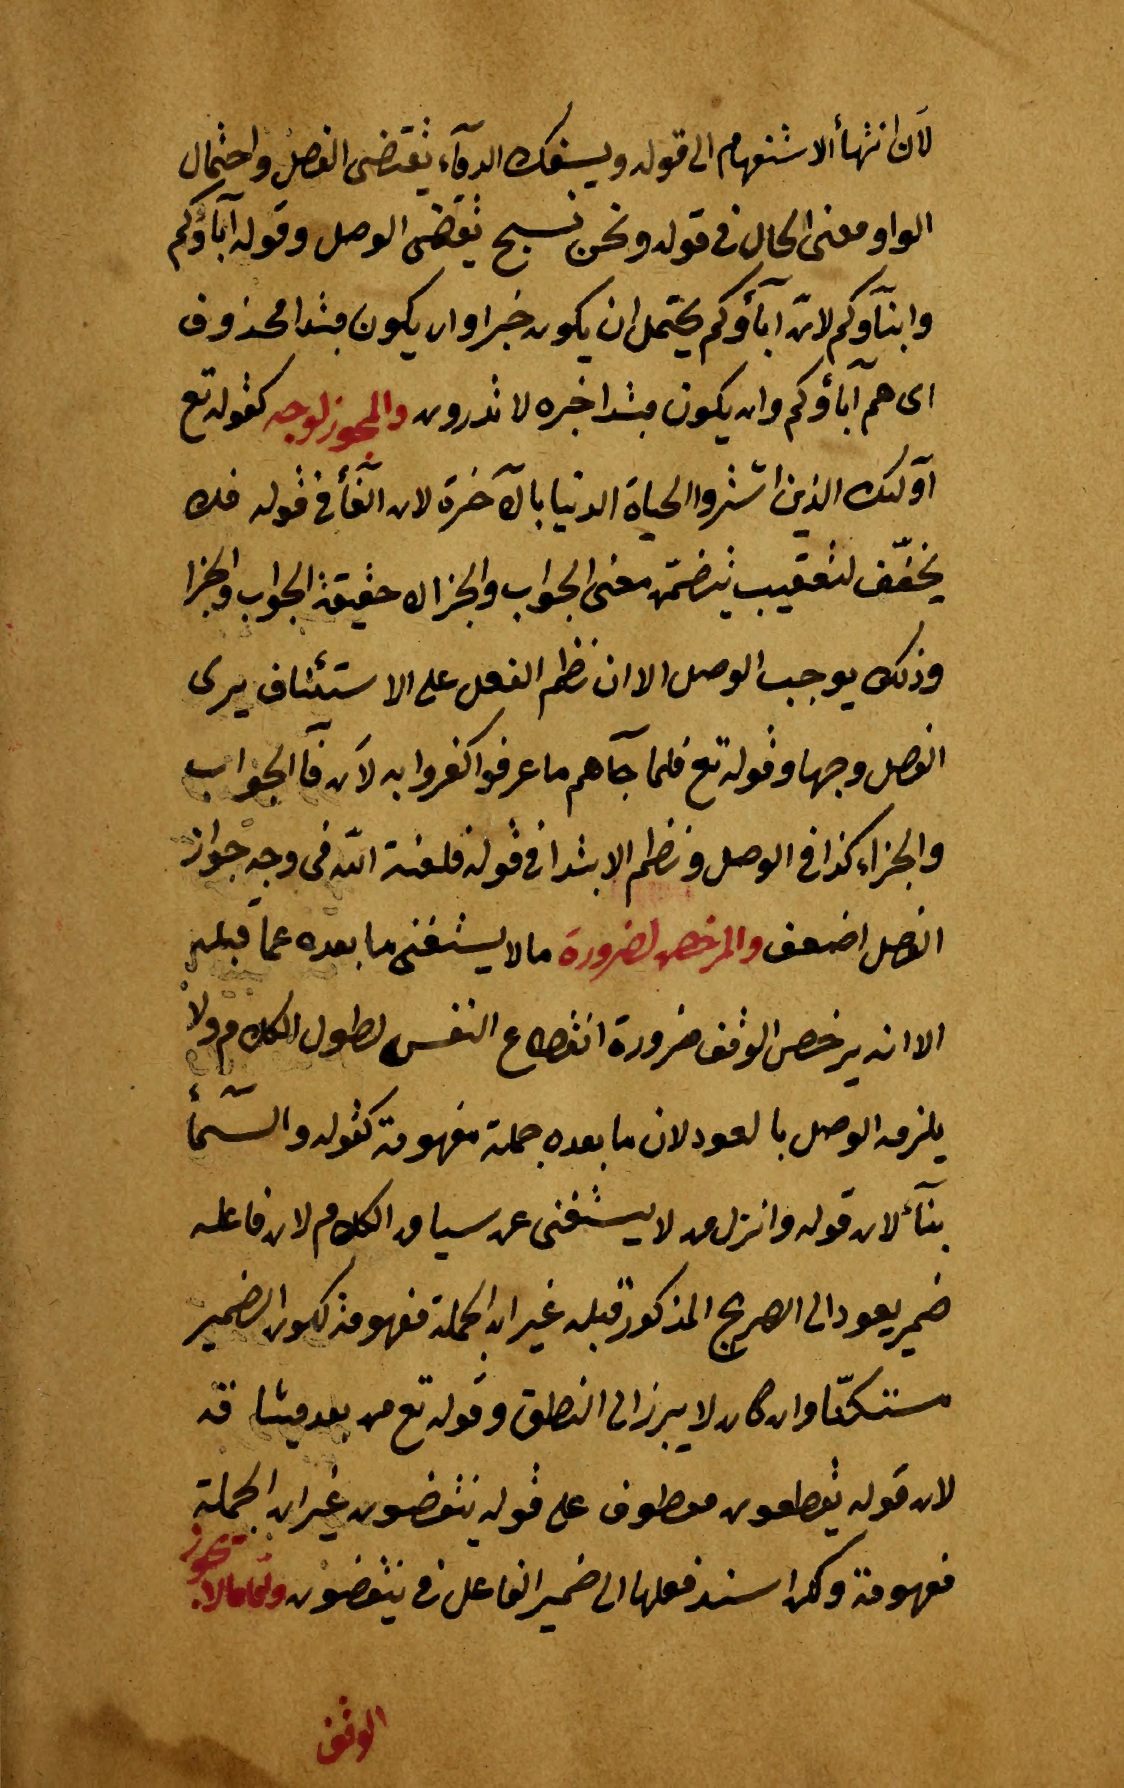 لان انتهأ الاستفهام الى قوله ويسفك الدمآء يقتضى الفصل واحتمال
الواو معنى الحال فى قوله ونحن نسبح يقتضى الوصل وقوله آبآؤكم
وابنآؤكم لان آبآؤكم يحتمل ان يكون خبرا وان يكون مبتدا محذوف
اى هم آبآؤكم وان يكون مبتدا خبره لا تدرون والمجوز لوجه كقوله تع
اولئك الذين اشتروا الحياة الدنيا بالآخرة لان الفآء فى قوله فلا
يخفّف لتعقيب يتضمن معنى الجواب والجزا لا حقيقة الجواب والجزا
وذلك يوجب الوصل الا ان نظم الفعل على الاستئناف يرى
الفصل وجها وقوله تع فلما جآهم ما عرفوا كفروا به لان فآ الجواب
والجزاء كذا فى الوصل ونظم الابتدا فى قوله فلعنة الله فى وجه جواز
الفصل اضعف والمرخص لضرورة ما لا يستغنى ما بعده عما قبله
الا انه يرخص الوقف ضرورة انقطاع النفس لطول الكلام ولا
يلزمه الوصل بالعود لان ما بعده جملة مفهومة كقوله والسّمآء
بنآء لان قوله وانزل من لا يستغنى عن سياق الكلام لان فاعله
ضمير يعود الى الصريح المذكور قبله غير ان الجملة مفهومة لكون الضمير
مستكنّا وان كان لا يبرز الى النطق وقوله تع من بعد ميثاقه
لان قوله يقطعون معطوف على قوله ينقضون غير ان الجملة
مفهومة وكلها اسند فعلها الى ضمير الفاعل فى ينقضون واما ما لا يجوز
الوقف